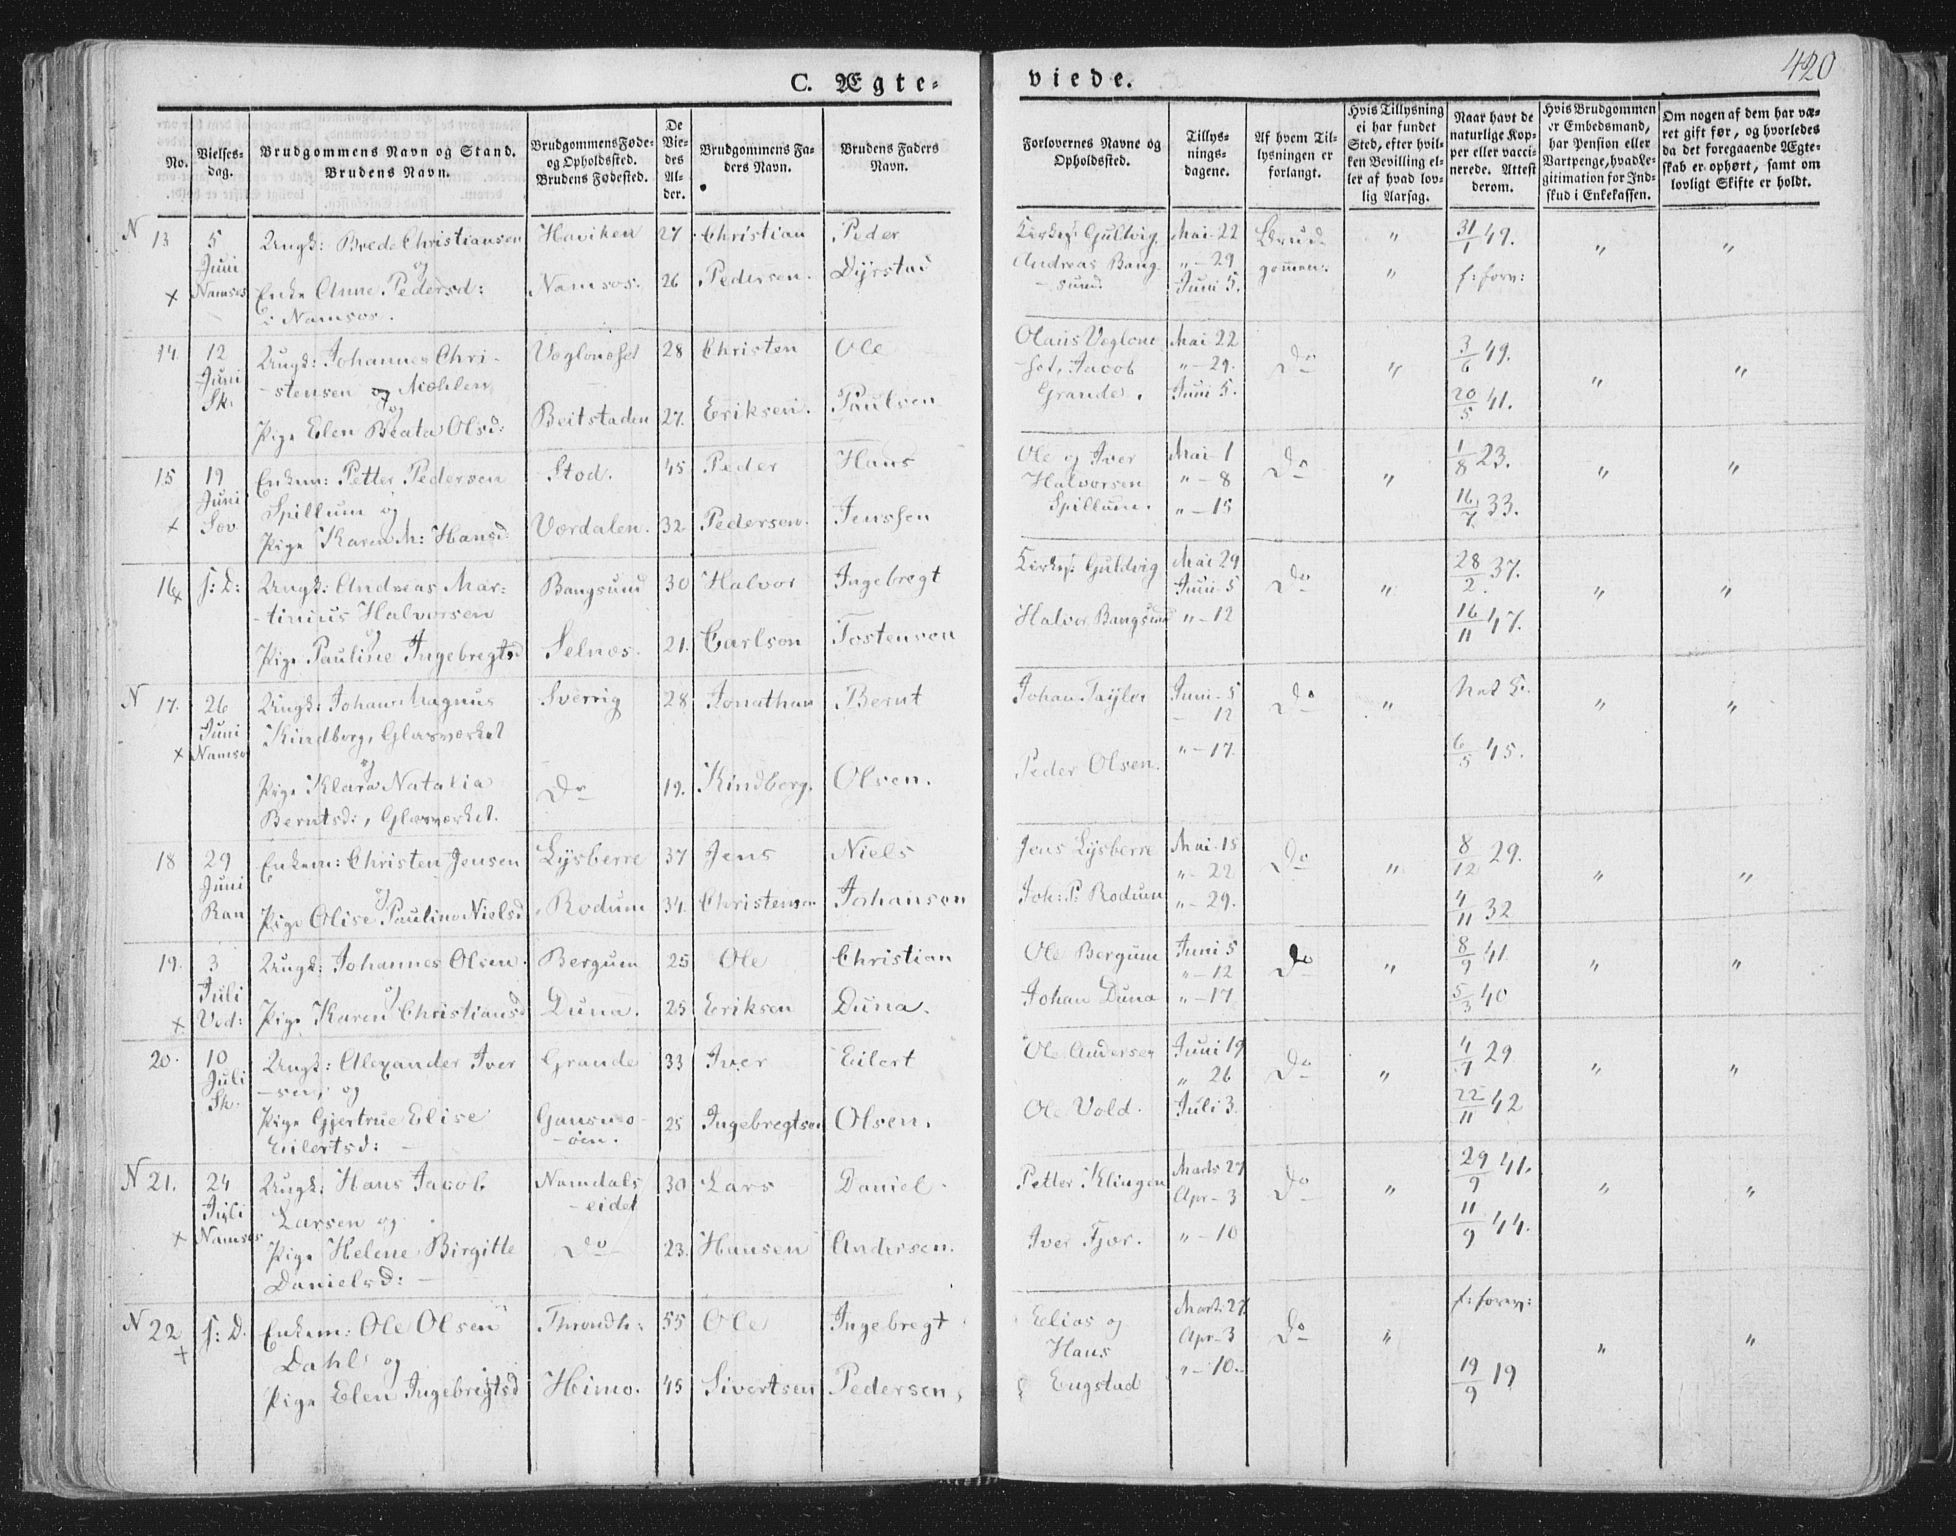 420
C. Ægte-
viede.
No.
Vielses-
dag.
Brudgommens Navn og Stand.
Brudens Navn.
Brudgommens Føde-
og Opholdssted.
Brudens Fødested.
De
Vie-
des
Al-
der.
Brudgommen's Fa-
ders Navn.
Brudens Faders
Navn.
Forlovernes Navne og
Opholdssted.
Tillys-
nings-
dagene.
Af hvem Til-
lysningen er
forlangt.
Hvis Tillysning
ei har fundet
Sted, efter hvil-
ken Bevilling el-
ler af hvad lov-
lig Aarsag.
Naar havt de
naturlige Kop-
per eller vacci-
nerede. Attest
derom.
Hvis Brudgommen
er Embedsmand,
har Pension eller
Vartpenge, hvad Le-
gitimation for Ind-
skud i Enkekassen.
Om nogen af dem har væ-
ret gift før, og hvorledes
da det foregaaende Ægte-
skab er ophørt, samt om
lovligt Skifte er holdt.
N 13 5 Ungk: Brede Christiansen Haviken 27 Christian Peder Kirkes: Gultvig. Mai 22 Brud- " 31/1 49. " "
Juni og Andreas Bang- " - 29 gommen: "
+ Namsos Enke Anne Pedersd: Namsos. 26 Pedersen. Dyrstad - sund. Juni 5. f: forv:
i Namsos.
14. 12 Ungk: Johannes Chri- Væglonesset 28 Christen Ole Olaus Veglone Mai 22 Do " 3/6 49. " "
Juni - stensen og Møhlen - set, Jacob " - 29.
Sk: og Grande. Juni 5. 20/5 41.
Pige Elen Beata Olsd: Beitstaden 27. Eriksen. Paulsen
15 19 Enkem: Petter Pedersen Stod. 45 Peder Hans Ole og Iver Mai 1 Do " 1/8 23. " "
Juni Spillum og Halvorsen " - 8
+ Sæv Pige Karen M: Hansd Værdalen. 32 Pedersen. Jenssen Spillum. " - 15 16/7 33.
16 + s: D: Ungk: Andreas Mar- Bangsund 30 Halvor Ingebregt Kirkes: Guldvig Mai 29 Do " 28/2 37. " "
- tinius Halvorsen Juni 5
og Halvor Bangsund " - 12 16/11 47.
Pige Pauline Ingebregtsd Selnæs. 21. Carlson Tostenson
N 17. 26 Ungk: Johan Magnus Sverrig 28 Jonathan Bernt Johan Tayler Juni 5 Do " "
Juni Kindborg, Glasværket - 12
+ Namsos og Peder Olsen. " - 17. 6/5 45.
Pige Klara Natalia Do 19. Kindborg. Olsen.
Berntsd:, Glasværket.
18 29 Enkem: Christen Jensen Lysberre 37 Jens Niels Jens Lysberre Mai 15 Do " 8/12 29. " "
Juni og " - 22
Ran Pige Olise Pauline Nielsd Rodum 34. Christensen Johansen Joh: P: Rodum " - 29. 4/11 32
19. 3 Ungk: Johannes Olsen. Bergum 25 Ole Christian Ole Bergum Juni 5 Do " 8/9 41 " "
Juli og " - 12
+ Ved: Pige Karen Christiansd Duna. 25 Eriksen Duna. Johan Duna " - 17. 5/3 40
20. 10 Ungk: Alexander Iver Grande 33 Iver Eilert Ole Andersen Juni 19 Do " 4/9 29 " "
Juli - sen, og " 26
Sk. Pige Gjertrue Elise Gansmo- 25 Ingebregtsen Olsen. Ole Vold. Juli 3. 22/11 42
Eilertsd: - - øen.
N 21. 24 Ungk: Hans Jacob Namdals 30 Lars Daniel Petter Klingen Marts 27 Do " 29/9 41. " "
Juli Larsen og - eidet Apr - 3
+ Namsos Pige Helene Birgitte Do 23. Hansen Andersen. Iver Fjær. " - 10 11/9 44.
Danielsd: -
N 22 s: D. Enkem: Ole Olsen Throndh: 55 Ole Ingebregt Elias og Mart: 27 Do " f: forv: " "
+ Dahl og Hans Apr - 3
Pige Elen Ingebregtsd Heimo. 45 Sivertsen Pedersen. Engstad " - 10. 19/9 19